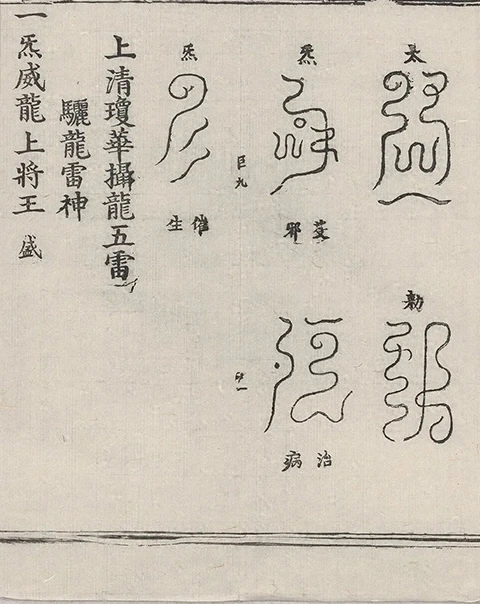 太
勑
炁
芟邪
治病
臣九
卧一
炁
催生
上清瓊華攝龍五雷
驪龍雷神
一炁威龍上將王 盛